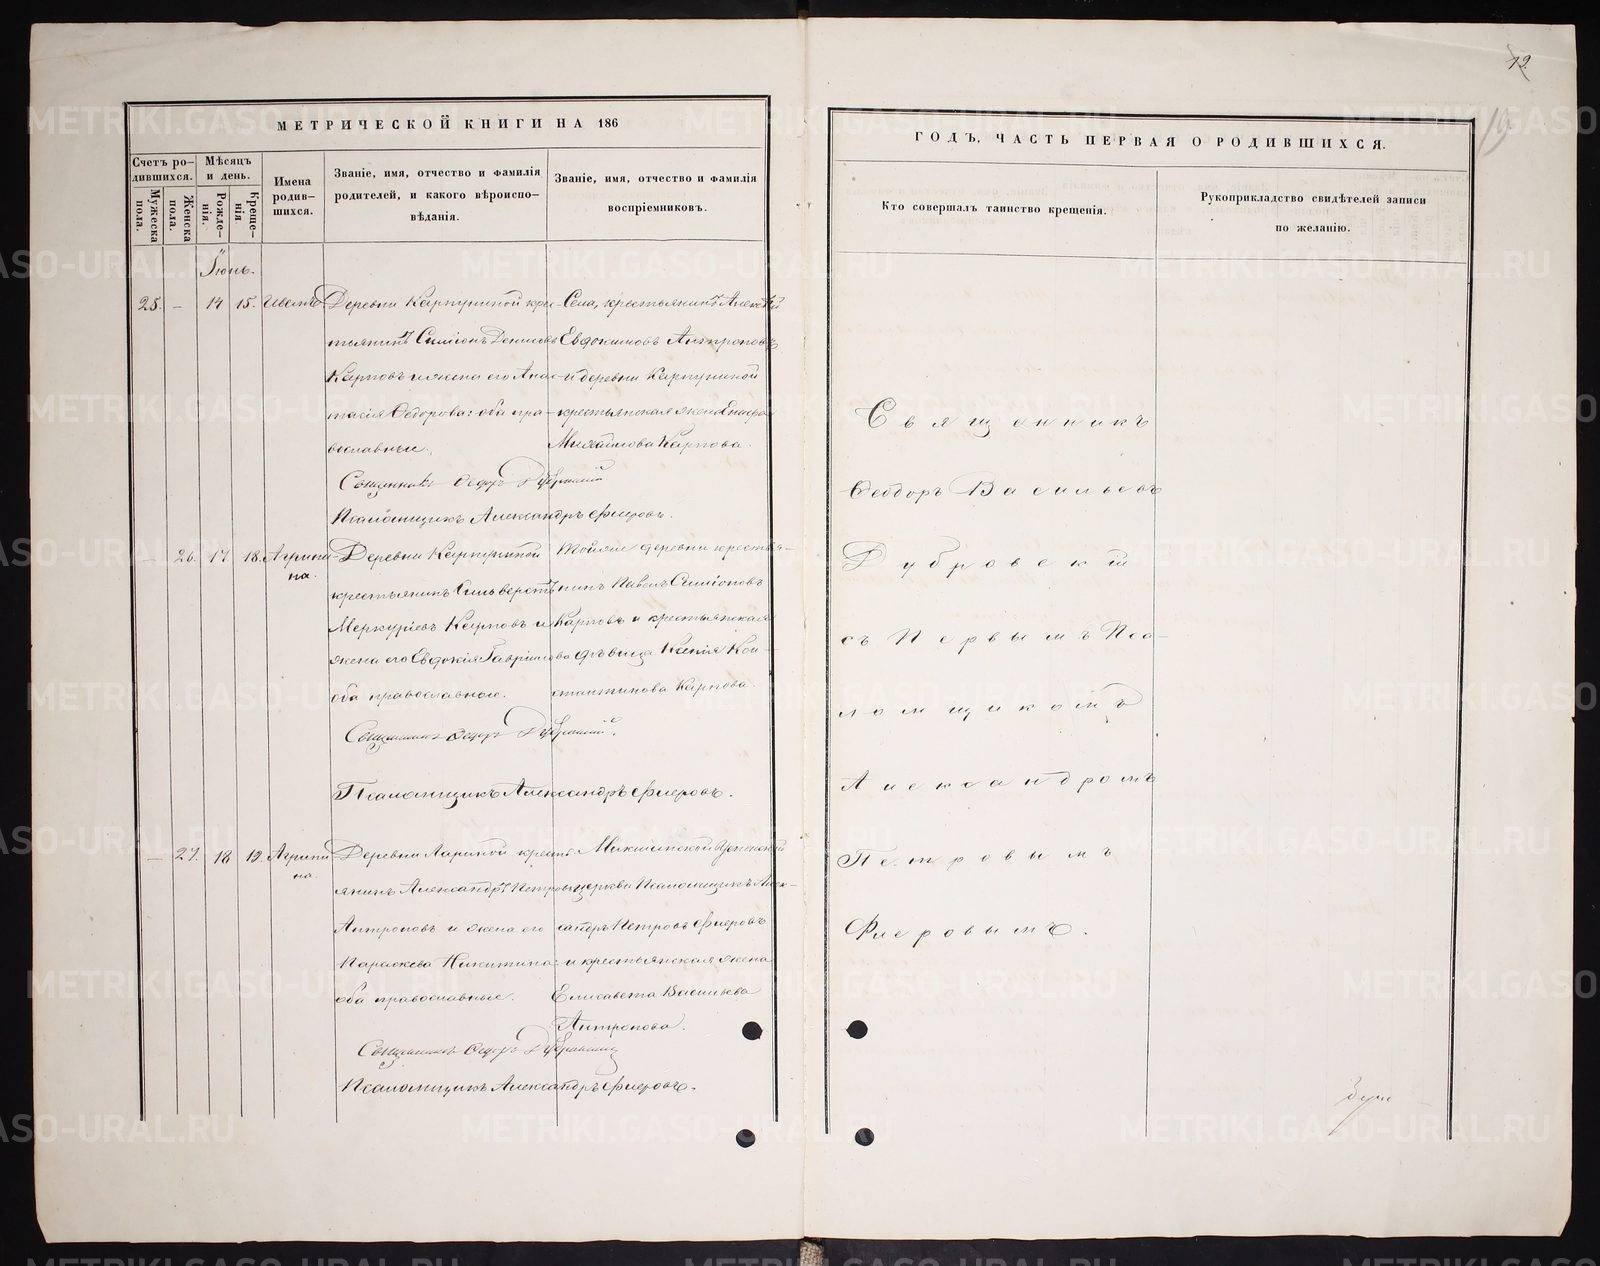 12
19
МЕТРИЧЕСКОЙ КНИГИ НА 186
ГОДЪ, ЧАСТЬ ПЕРВАЯ О РОДИВШИХСЯ.
Счетъ родившихся.
Мужеска пола.
Женска пола.
Мѣсяцъ и день.
Рожденія.
Крещенія.
Имена родившихся.
Званіе, имя, отчество и фамилія родителей, и какого вѣроисповѣданія.
Званіе, имя, отчество и фамилія воспріемниковъ.
Кто совершалъ таинство крещенія.
Рукоприкладство свидѣтелей записи по желанію.
Іюнь.
25. – 14 15.
Деревни Карпушиной кре-
стьянинъ Симіонъ Денисовъ
Карповъ и жена его Анас-
тасія Ѳедорова: оба пра-
вославные.
Села, крестьянинъ Алексѣй
Евдокимовъ Антроповъ
и деревни Карпушиной
крестьянская жена
Михайлова Карпова.
Священникъ Ѳедоръ Дубровскій
Псаломщикъ Александръ Флеровъ.
– 26. 17 18. Агрипи-
на.
Деревни Карпушиной
крестьянинъ Сильверстъ
Меркуріевъ Карповъ и
жена его Евдокія Гаврилова
оба православные.
Тойже деревни крестья-
нинъ Павелъ Симіоновъ
Карповъ и крестьянская
дѣвица Ксенія Кон-
стантинова Карпова.
Священникъ Ѳедоръ Дубровскій.
Псаломщикъ Александръ Флеровъ.
– 27. 18 19. Агрипи-
на.
Деревни Лариной крест-
янинъ Александръ Петровъ
Антроповъ и жена его
Параскева Никитина:
оба православные.
церкви Псаломщикъ Алек-
сандръ Петровъ Флеровъ
и крестьянская жена
Елисавета Васильева
Антропова.
Священникъ Ѳедоръ Дубровскій
Псаломщикъ Александръ Флеровъ.
Священникъ
Ѳеодоръ Васильевъ
Дубровскій
съ Первымъ Пса-
ломщикомъ
Александромъ
Петровымъ
Флеровымъ.
METRIKI.GASO-URAL.RU